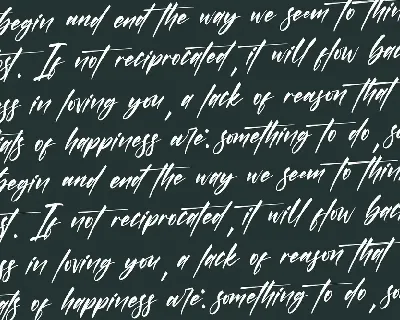 begin and end the way we seem to thin
ost. If not reciprocated, it will flow bac
ss in loving you, a lack of reason that
ials of happiness are: something to do, so
begin and end the way we seem to thin
st. If not reciprocated, it will flow bac
ss in loving you, a lack of reason that
ials of happiness are: something to do, so